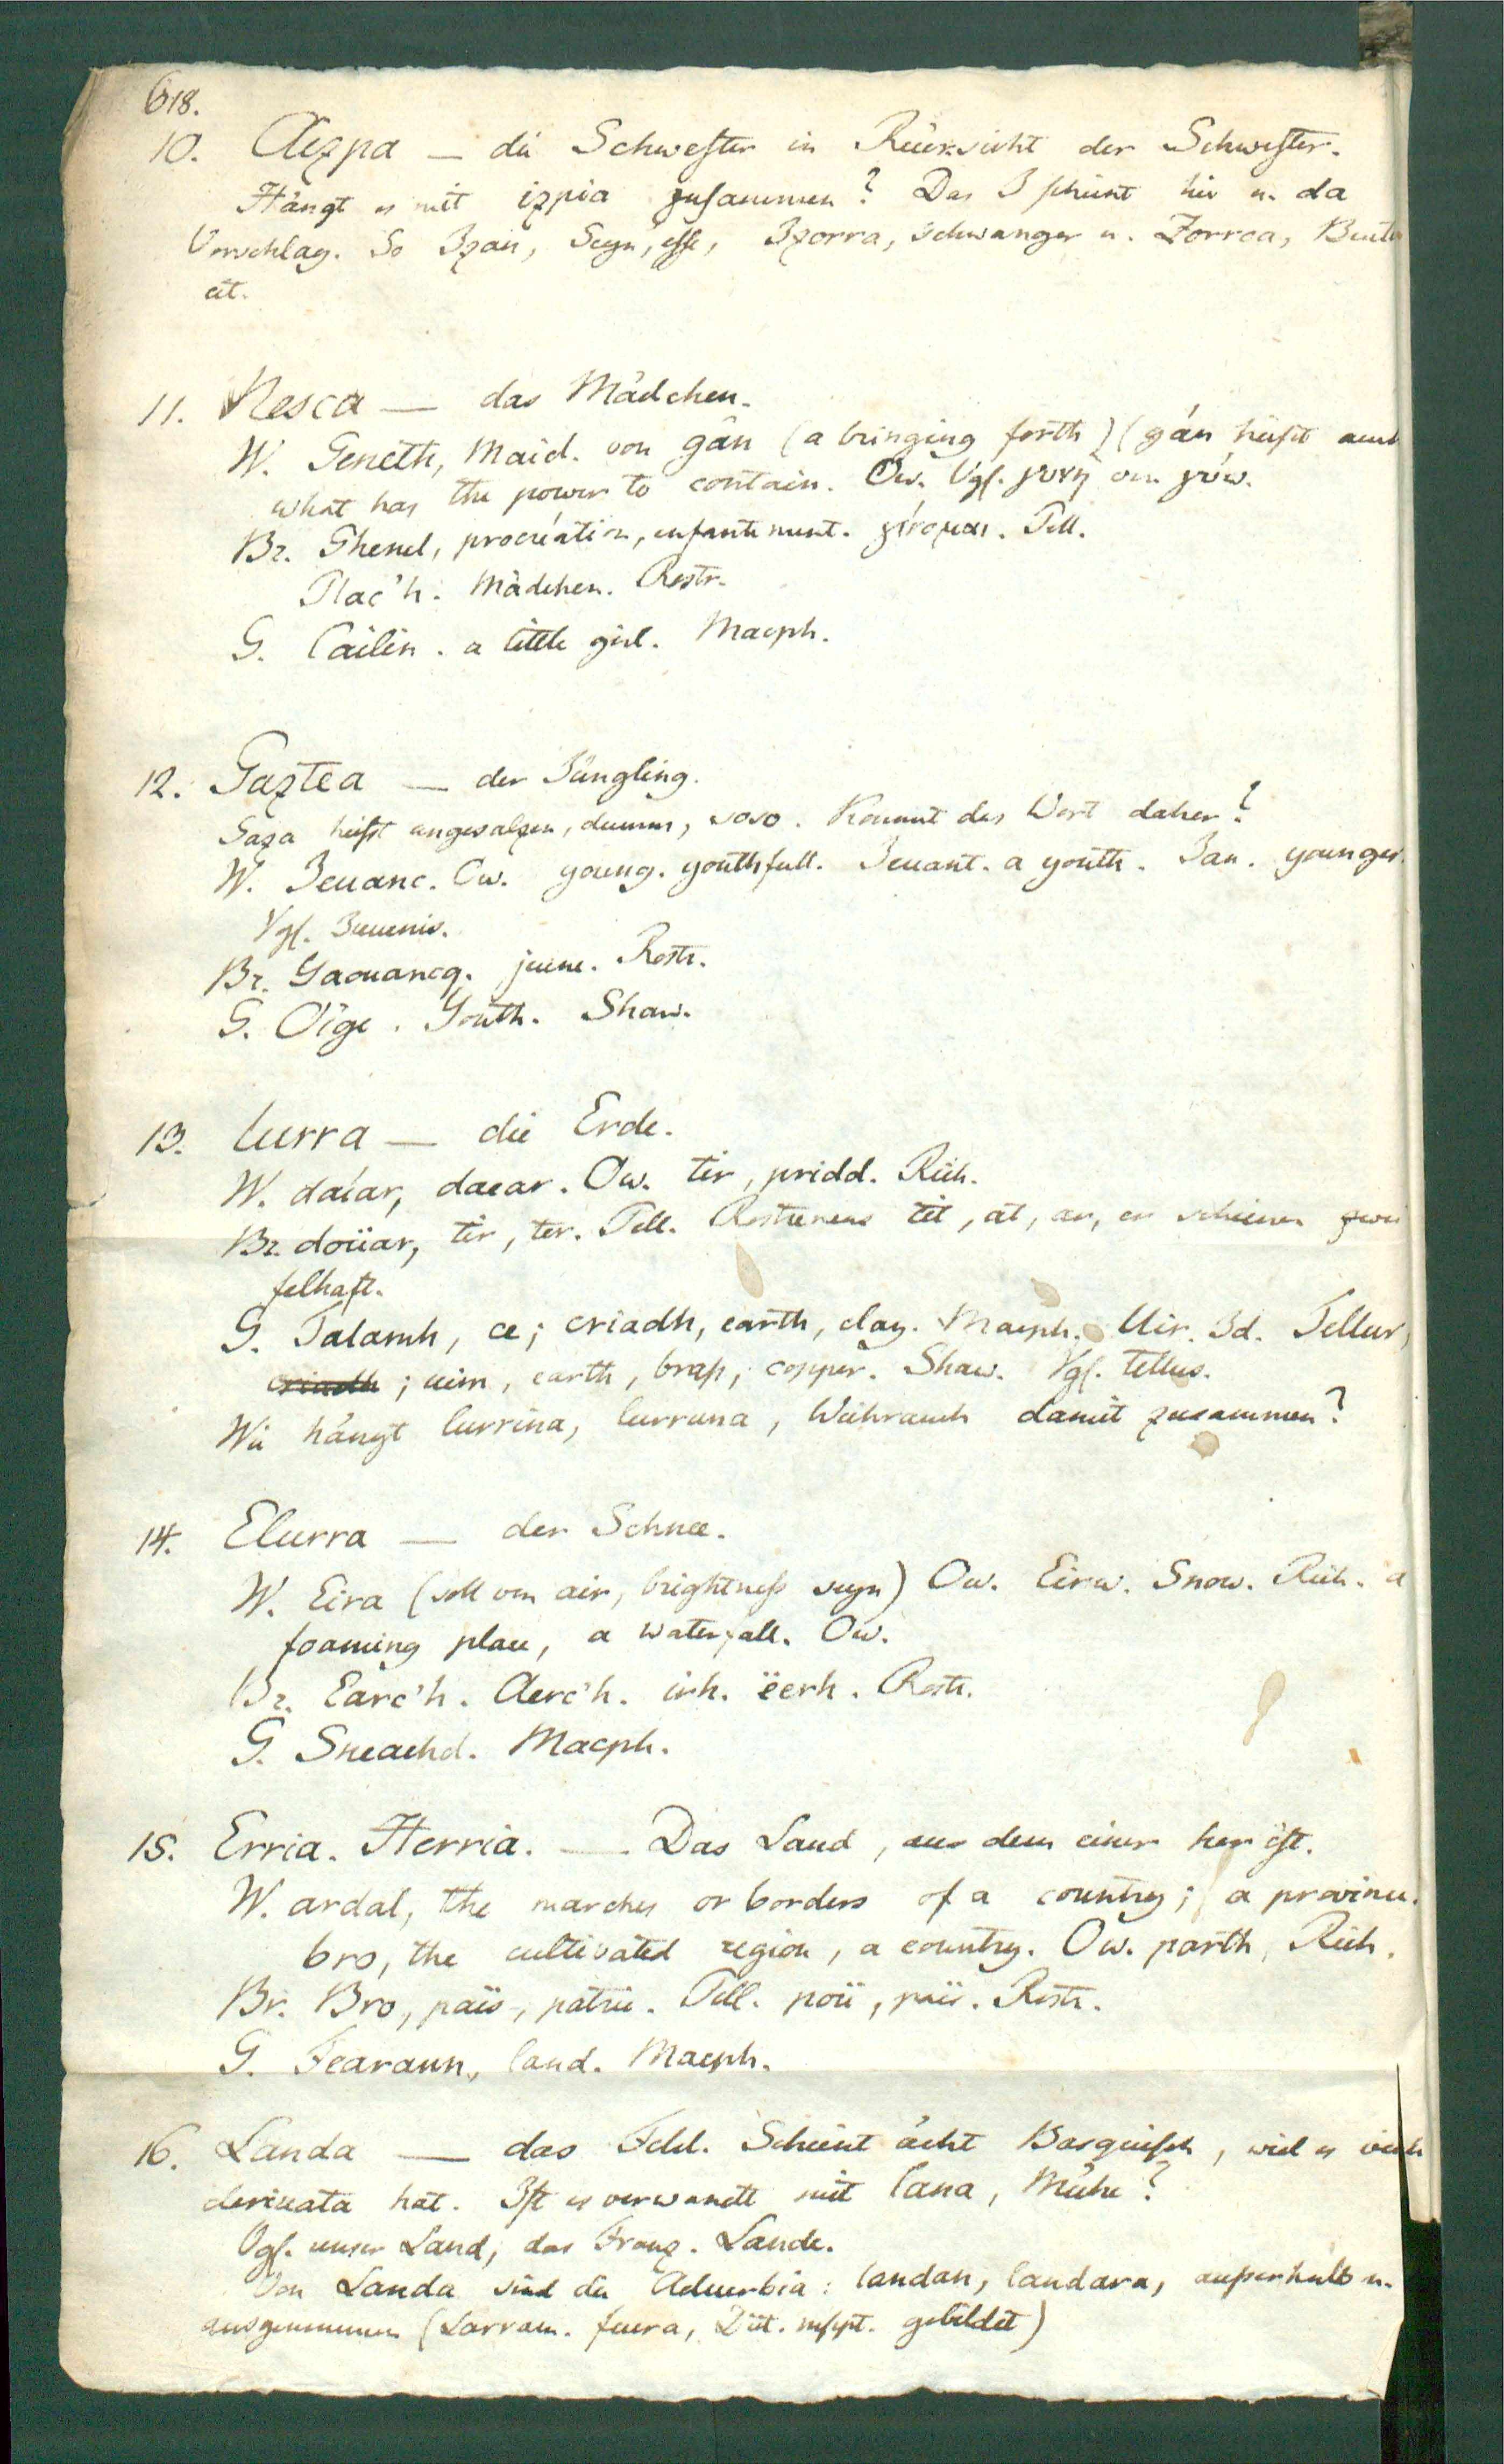 618.
10. Aizpa — die Schwester in Rücksicht der Schwester.
Hängt es mit izpia zusammen? Das I scheint hie u. da
Vorschlag. So Izan, Seyn, esse, Izorra, schwanger u. Zorroa, Beutel
et.
11. Nesca — das Mädchen.
W. Geneth, Maid. von gân (a bringing forth) (gán heißt auch
what has the power to contain. Ow. Vgl. γυνη von γύω.
Br. Ghenel, procréation, enfantement. γίνομαι. Pell.
Plac'h. Mädchen. Rostr.
G. Cailin. a little girl. Macph.
12. Gaztea — der Jüngling.
Gaza heißt ungesalzen, dumm, soso. Kommt das Wort daher?
W. Ieuanc. Ow. young. youthfull. Ieuant. a youth. Iau. younger.
Vgl. Iuuenis.
Br. Yaouancq. jeune. Rostr.
G. Oige. Youth. Shaw.
13. lurra — die Erde.
W. daíar, daear. Ow. tir, pridd. Rich.
Br. doüar, tir, ter. Pell. Rostrenens tit, at, ar, er scheinen zwei
felhaft.
G. Talamh, ce; criadh, earth, clay. Macph. Uir. Id. Tellur,
criadh; uim, earth, braß, copper. Shaw. Vgl. tellus.
Wie hängt lurrina, lurruna, Weihrauch damit zusammen?
14. Elurra — der Schnee.
W. Eira (soll von air, brightneß seyn) Ow. Eirw. Snow. Rich. a
foaming place, a waterfall. Ow.
Br. Earc'h. Aerc'h. irh. ëerh. Rostr.
G. Sneachd. Macph.
15. Erria. Herria. — Das Land, aus dem einer her ist.
W. ardal, the marches or borders of a country; a province.
bro, the cultivated region, a country. Ow. parth, Rich.
Br. Bro, païs, patrie. Pell. poü, païs. Rostr.
G. Fearann, land. Macph.
16. Landa — das Feld. Scheint ächt Basquisch, weil es viele
derivata hat. Ist es verwandt mit lana, Mühe?
Vgl. unser Land, das Franz. Lande.
Von Landa sind die Aduerbia: landan, landara, außerhalb u.
ausgenommen (Larram. fuera, Dict. mspt. gebildet)